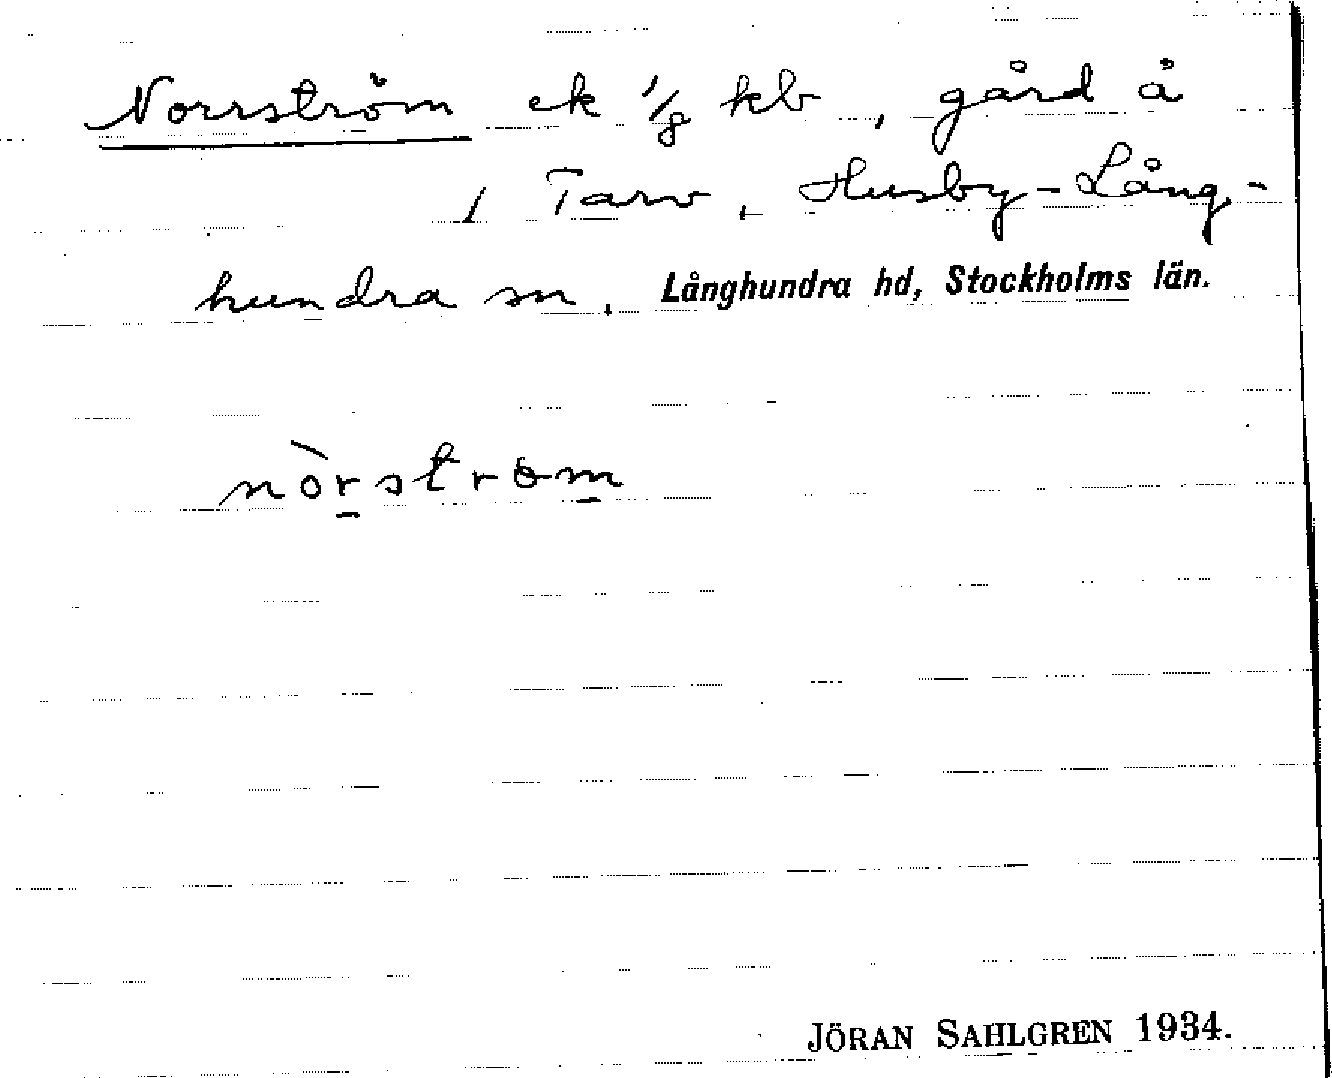 Norrström ek 1/8 kb, gård å
1 Tarv, Husby-Lång-
hundra sn, Långhundra hd, Stockholms län.
nòrström
JÖRAN SAHLGREN 1934.